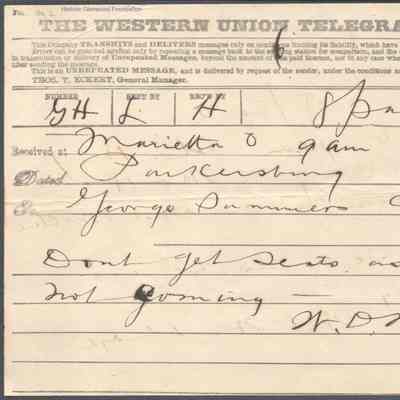 Historic Ownership Foundation
THE WESTERN UNION TELEGRA
This Company TRANSMITS and DELIVERS messages only on conditions limiting its liability, which have
Errors can be guarded against only by repeating a message back to the sending station for comparison, and the
in transmission or delivery of Unrepeated Messages, beyond the amount of tolls paid thereon, nor in any case whe
after sending the message.
This is an UNREPEATED MESSAGE, and is delivered by request of the sender, under the conditions na
THOS. T. ECKERT, General Manager.
NUMBER SENT BY REC'D BY
GH L H 8 Pa
Received at Marietta O 9 am
Dated Parkersburg
To George Summers
Dont get seats as
not coming —
W. D.